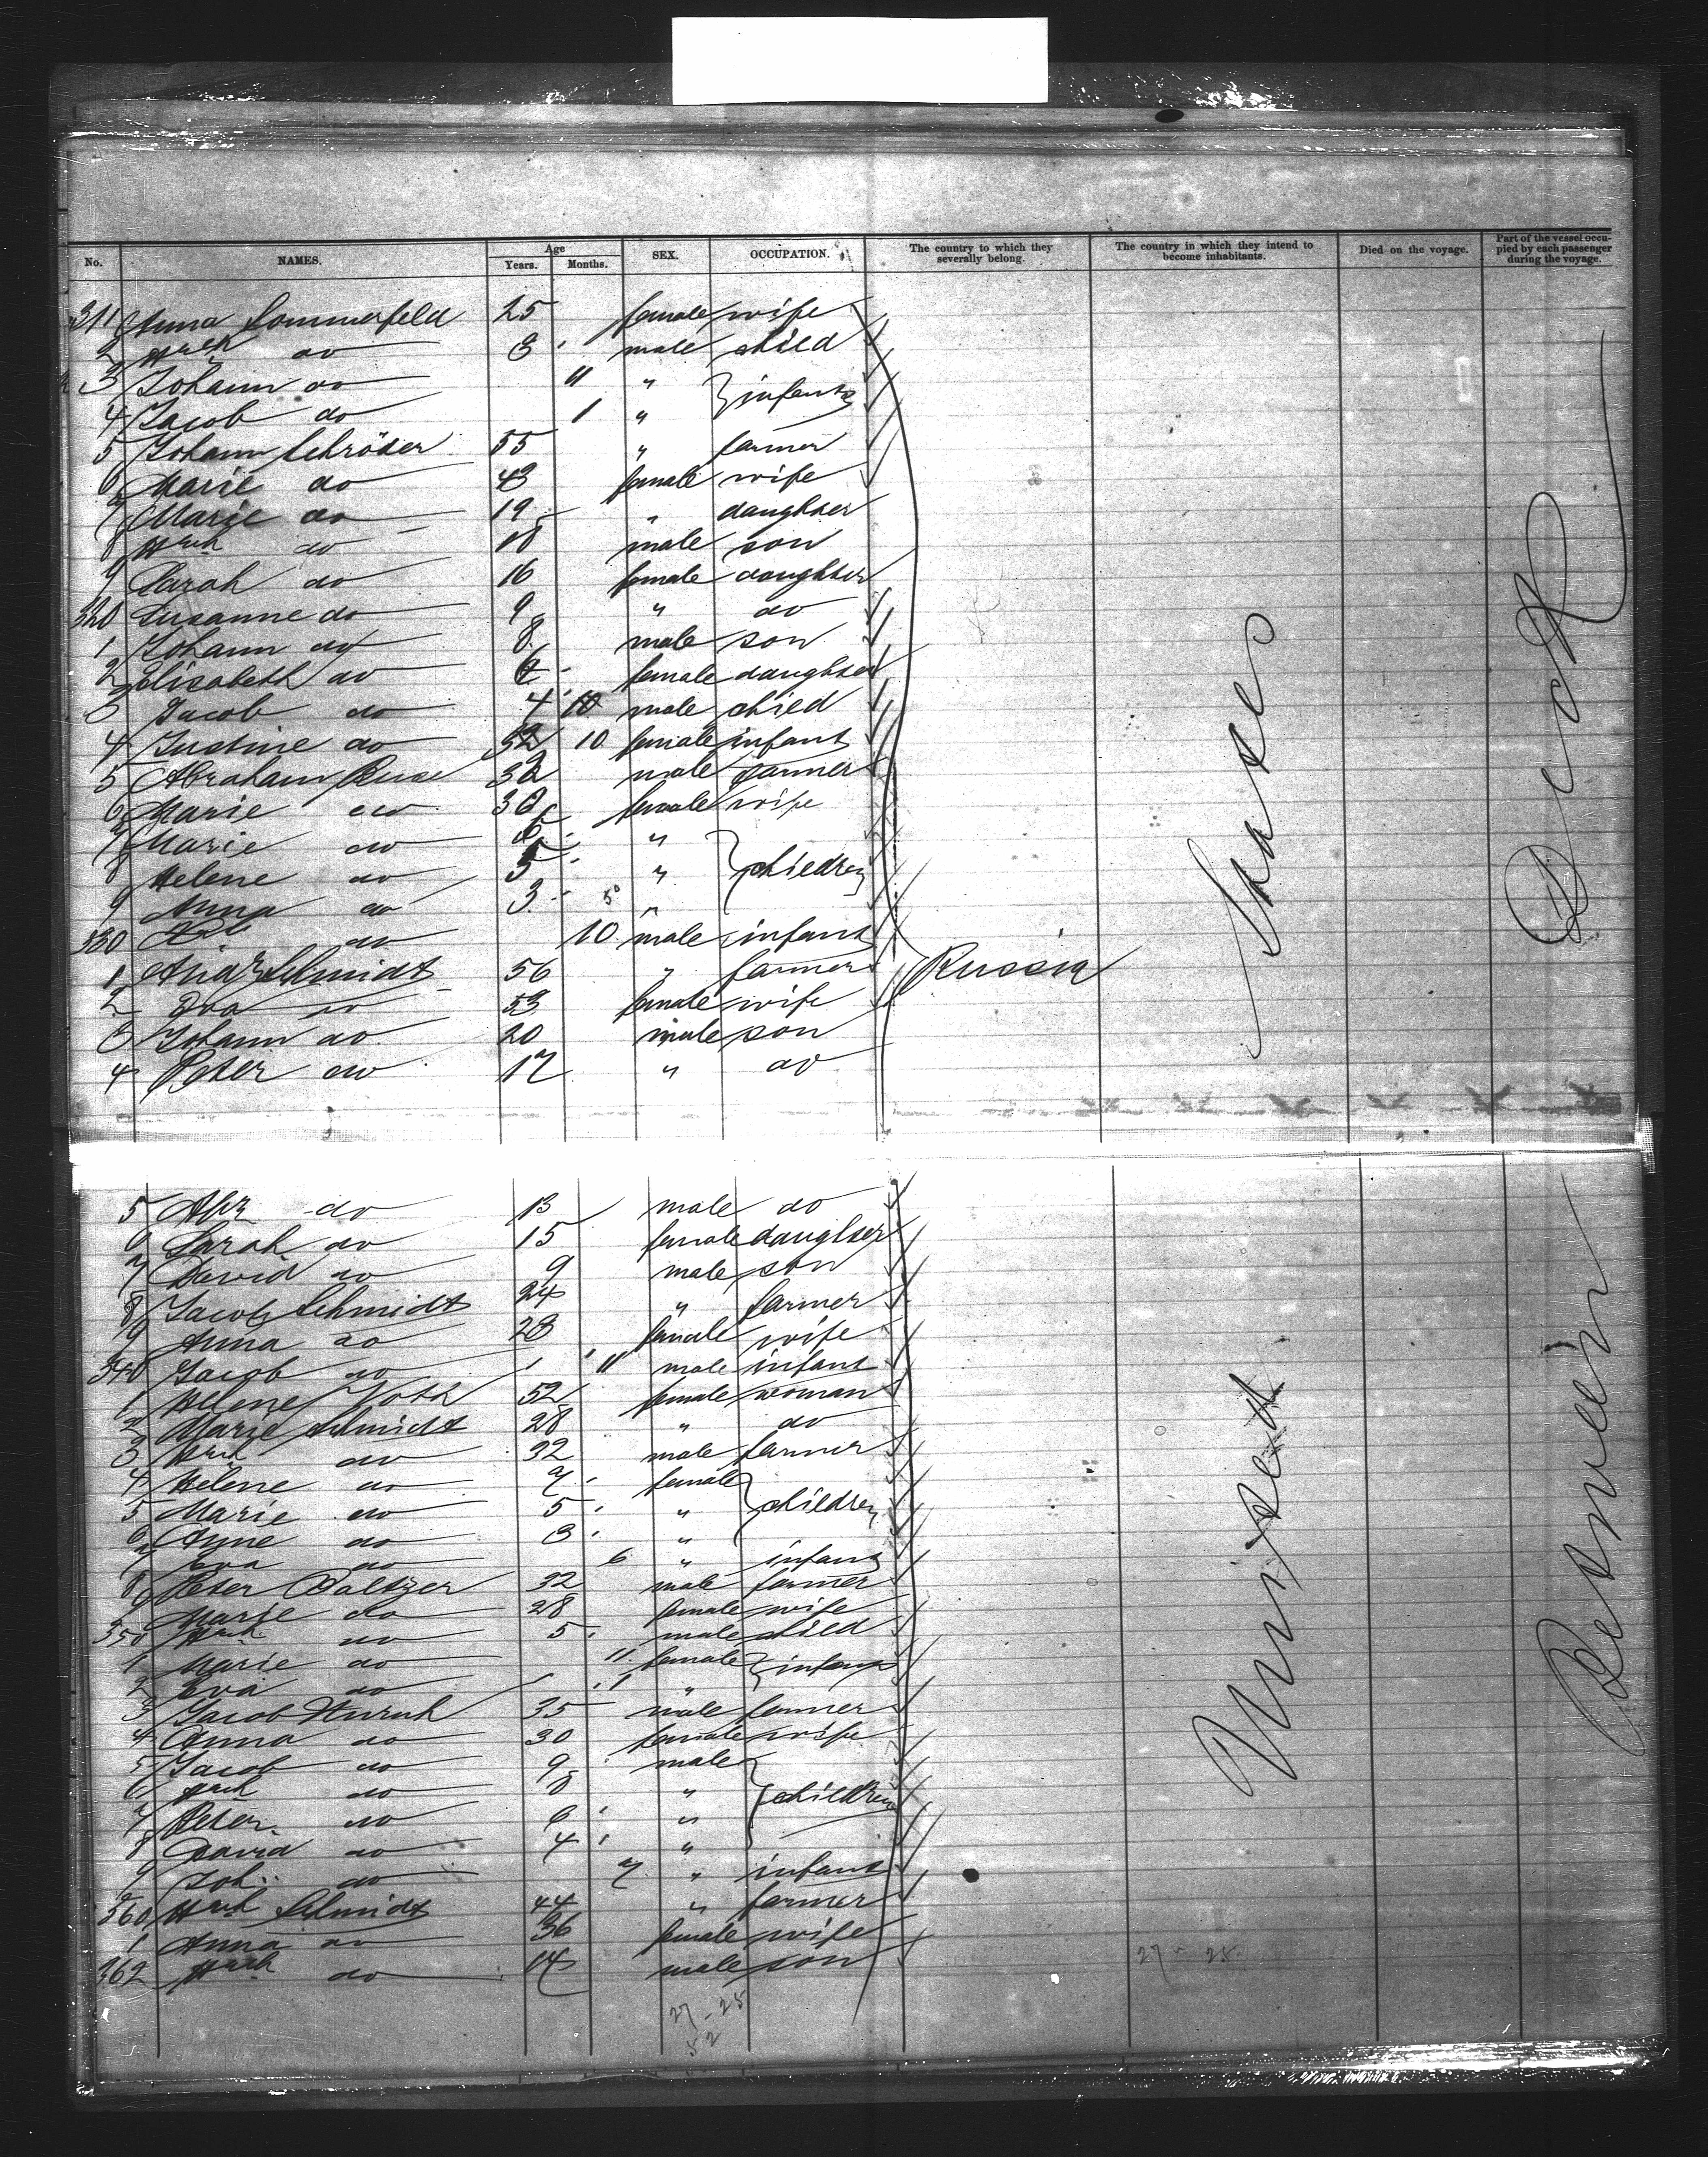 No. NAMES. Age Years. Months. SEX. OCCUPATION. The country to which they severally belong. The country in which they intend to become inhabitants. Died on the voyage. Part of the vessel occupied by each passenger during the voyage.
311 Anna Sommerfeld 25 female wife
2 Hrch do 3 male child
3 Johann do 11 " } infants
4 Jacob do 1 "
5 Johann Schröder 55 " farmer
6 Marie do 43 female wife
7 Marie do 19 " daughter
8 Hrch do 18 male son
9 Sarah do 16 female daughter
320 Susanne do 9 " do
1 Johann do 8 male son
2 Elisabeth do 6 female daughter
3 Jacob do 4 male child
4 Justine do 10 female infant
5 Abraham 32 male farmer
6 Marie do 30 female wife
7 Marie do " } children
8 Helene do 5 "
9 Anna do 3 "
330 do 10 male infant
1 Schmidt 56 " farmer
2 Eva do 53 female wife
3 Johann do 20 male son
4 Peter do 17 " do
Russia
5 do 13 male do
6 Sarah do 15 female daughter
7 David do 9 male son
8 Jacob Schmidt 24 " farmer
9 Anna do 23 female wife
340 Jacob do 11 male infant
1 Helene Voth 52 female woman
2 Marie Schmidt 28 " do
3 Hrch do 32 male farmer
4 Helene do 7 female } children
5 Marie do 5 "
6 Anne do 3 "
7 Eva do 6 " infant
8 Peter Baltzer 32 male farmer
9 Marie do 28 female wife
350 Hrch do 5 male child
1 Marie do 11 female } infants
2 Eva do 1 "
3 Jacob 35 male farmer
4 Anna do 30 female wife
5 Jacob do 9 male } children
6 Hrch do 8 "
7 Peter do 6 "
8 David do 4 "
9 Joh: do 7 " infant
360 Hrch Schmidt 44 " farmer
1 Anna do 36 female wife
362 Hrch do 14 male son
United States
Between Deck
27-25
52
27-25